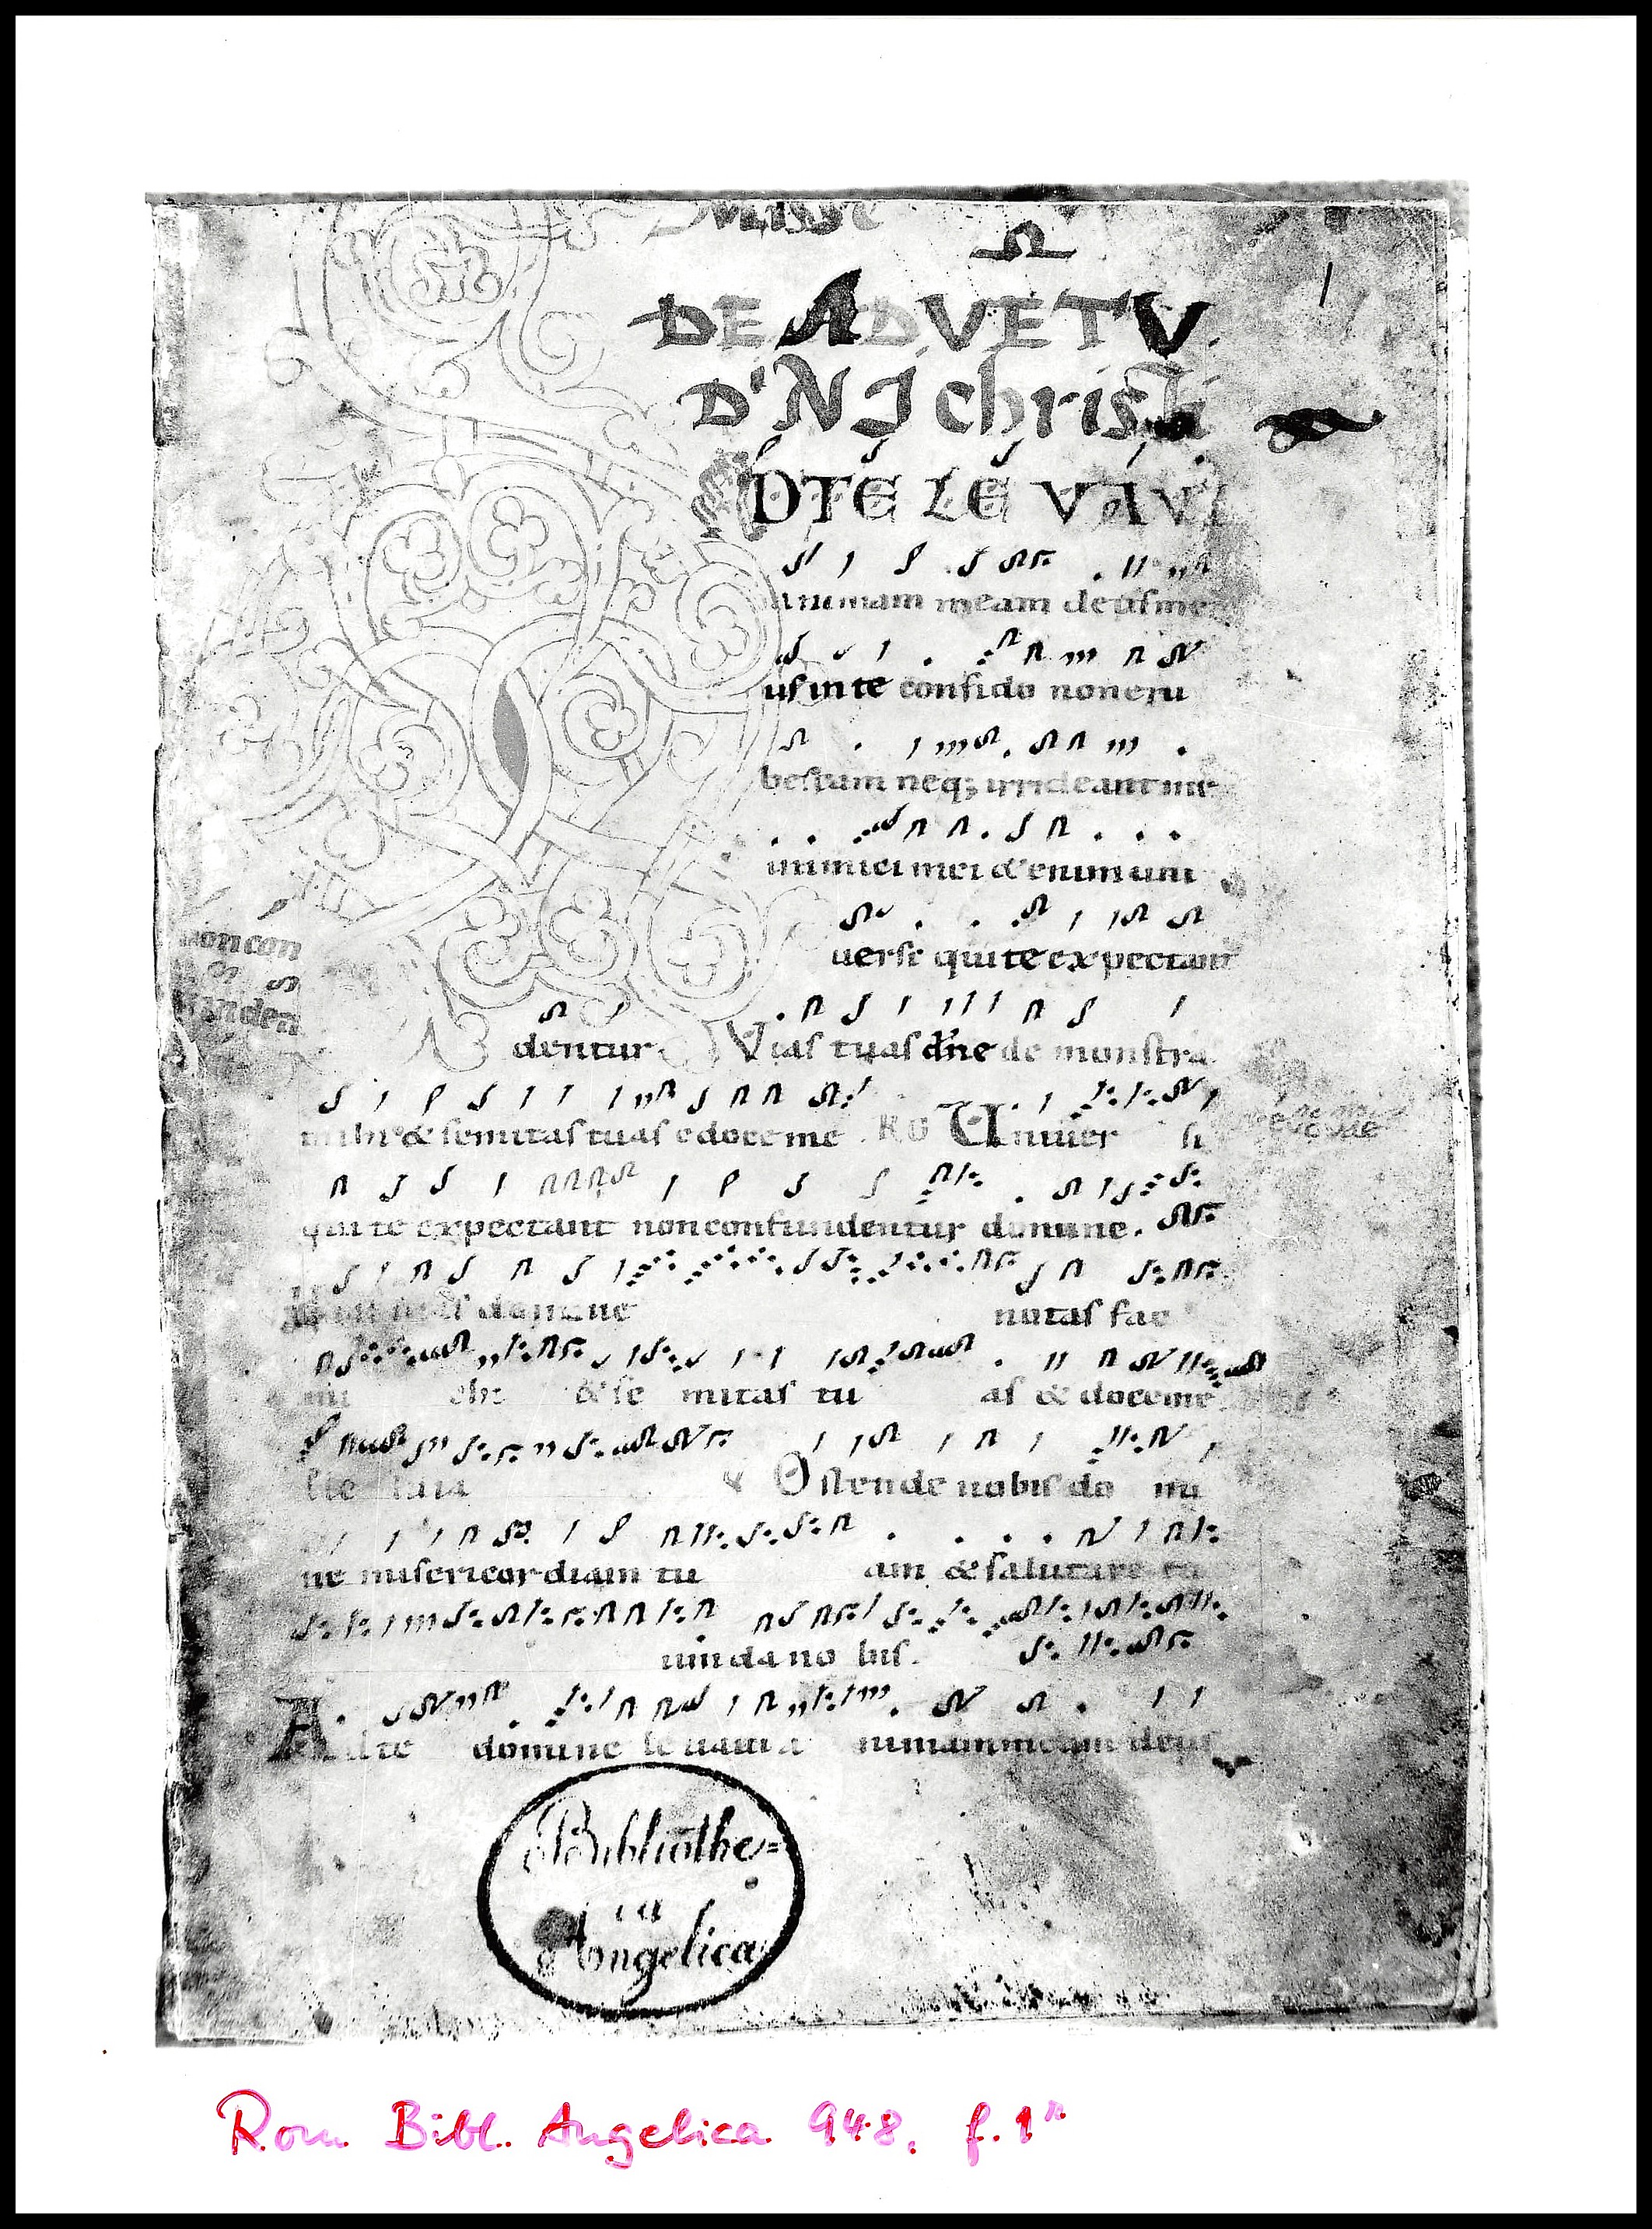 Misse
DE ADVETV
D'NI christi
ADTE LEVAVI
animam meam deus me
us in te confido non eru
bescam neq; irrideant me
inimici mei & enim uni
uerse qui te expectant
non con
funden
dentur. Vias tuas dne de monstra
mihi & semitas tuas edoce me. Uniuer si
euouae
qui te expectant non confundentur domine.
domine notas fac
mi chi & se mitas tu as & doce me
lle luia Ostende nobis do mi
ne misericordiam tu am & salutare tu
um da no bis.
Ad te domine leuaui a nimam meam deus
Bibliothe=
ca
Angelica
Rom Bibl. Angelica 948. f. 1r